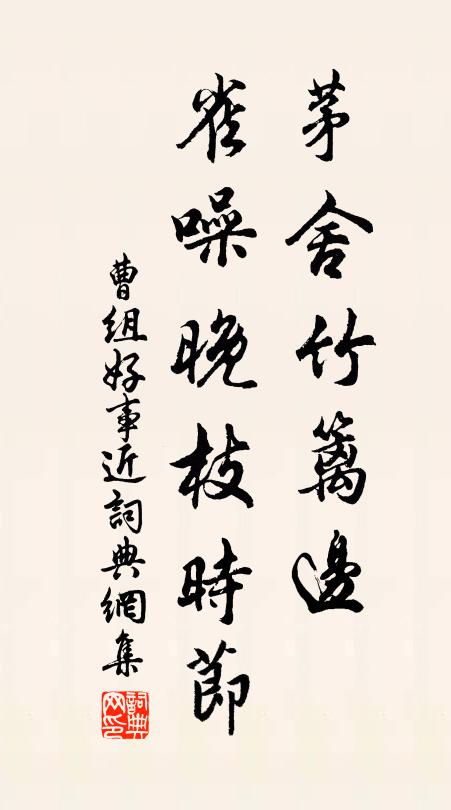 茅舍竹籬邊
雀噪晚枝時節
曹組好事近詞典網集
詞典網印